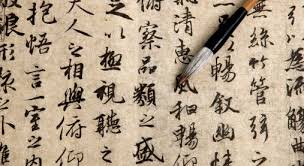 無絲竹管弦之
暢叙幽情
清惠風和暢仰
俯察品類之盛
以極視聽之
夫人之相與俯仰
抱悟言一室之内
浪形骸之外